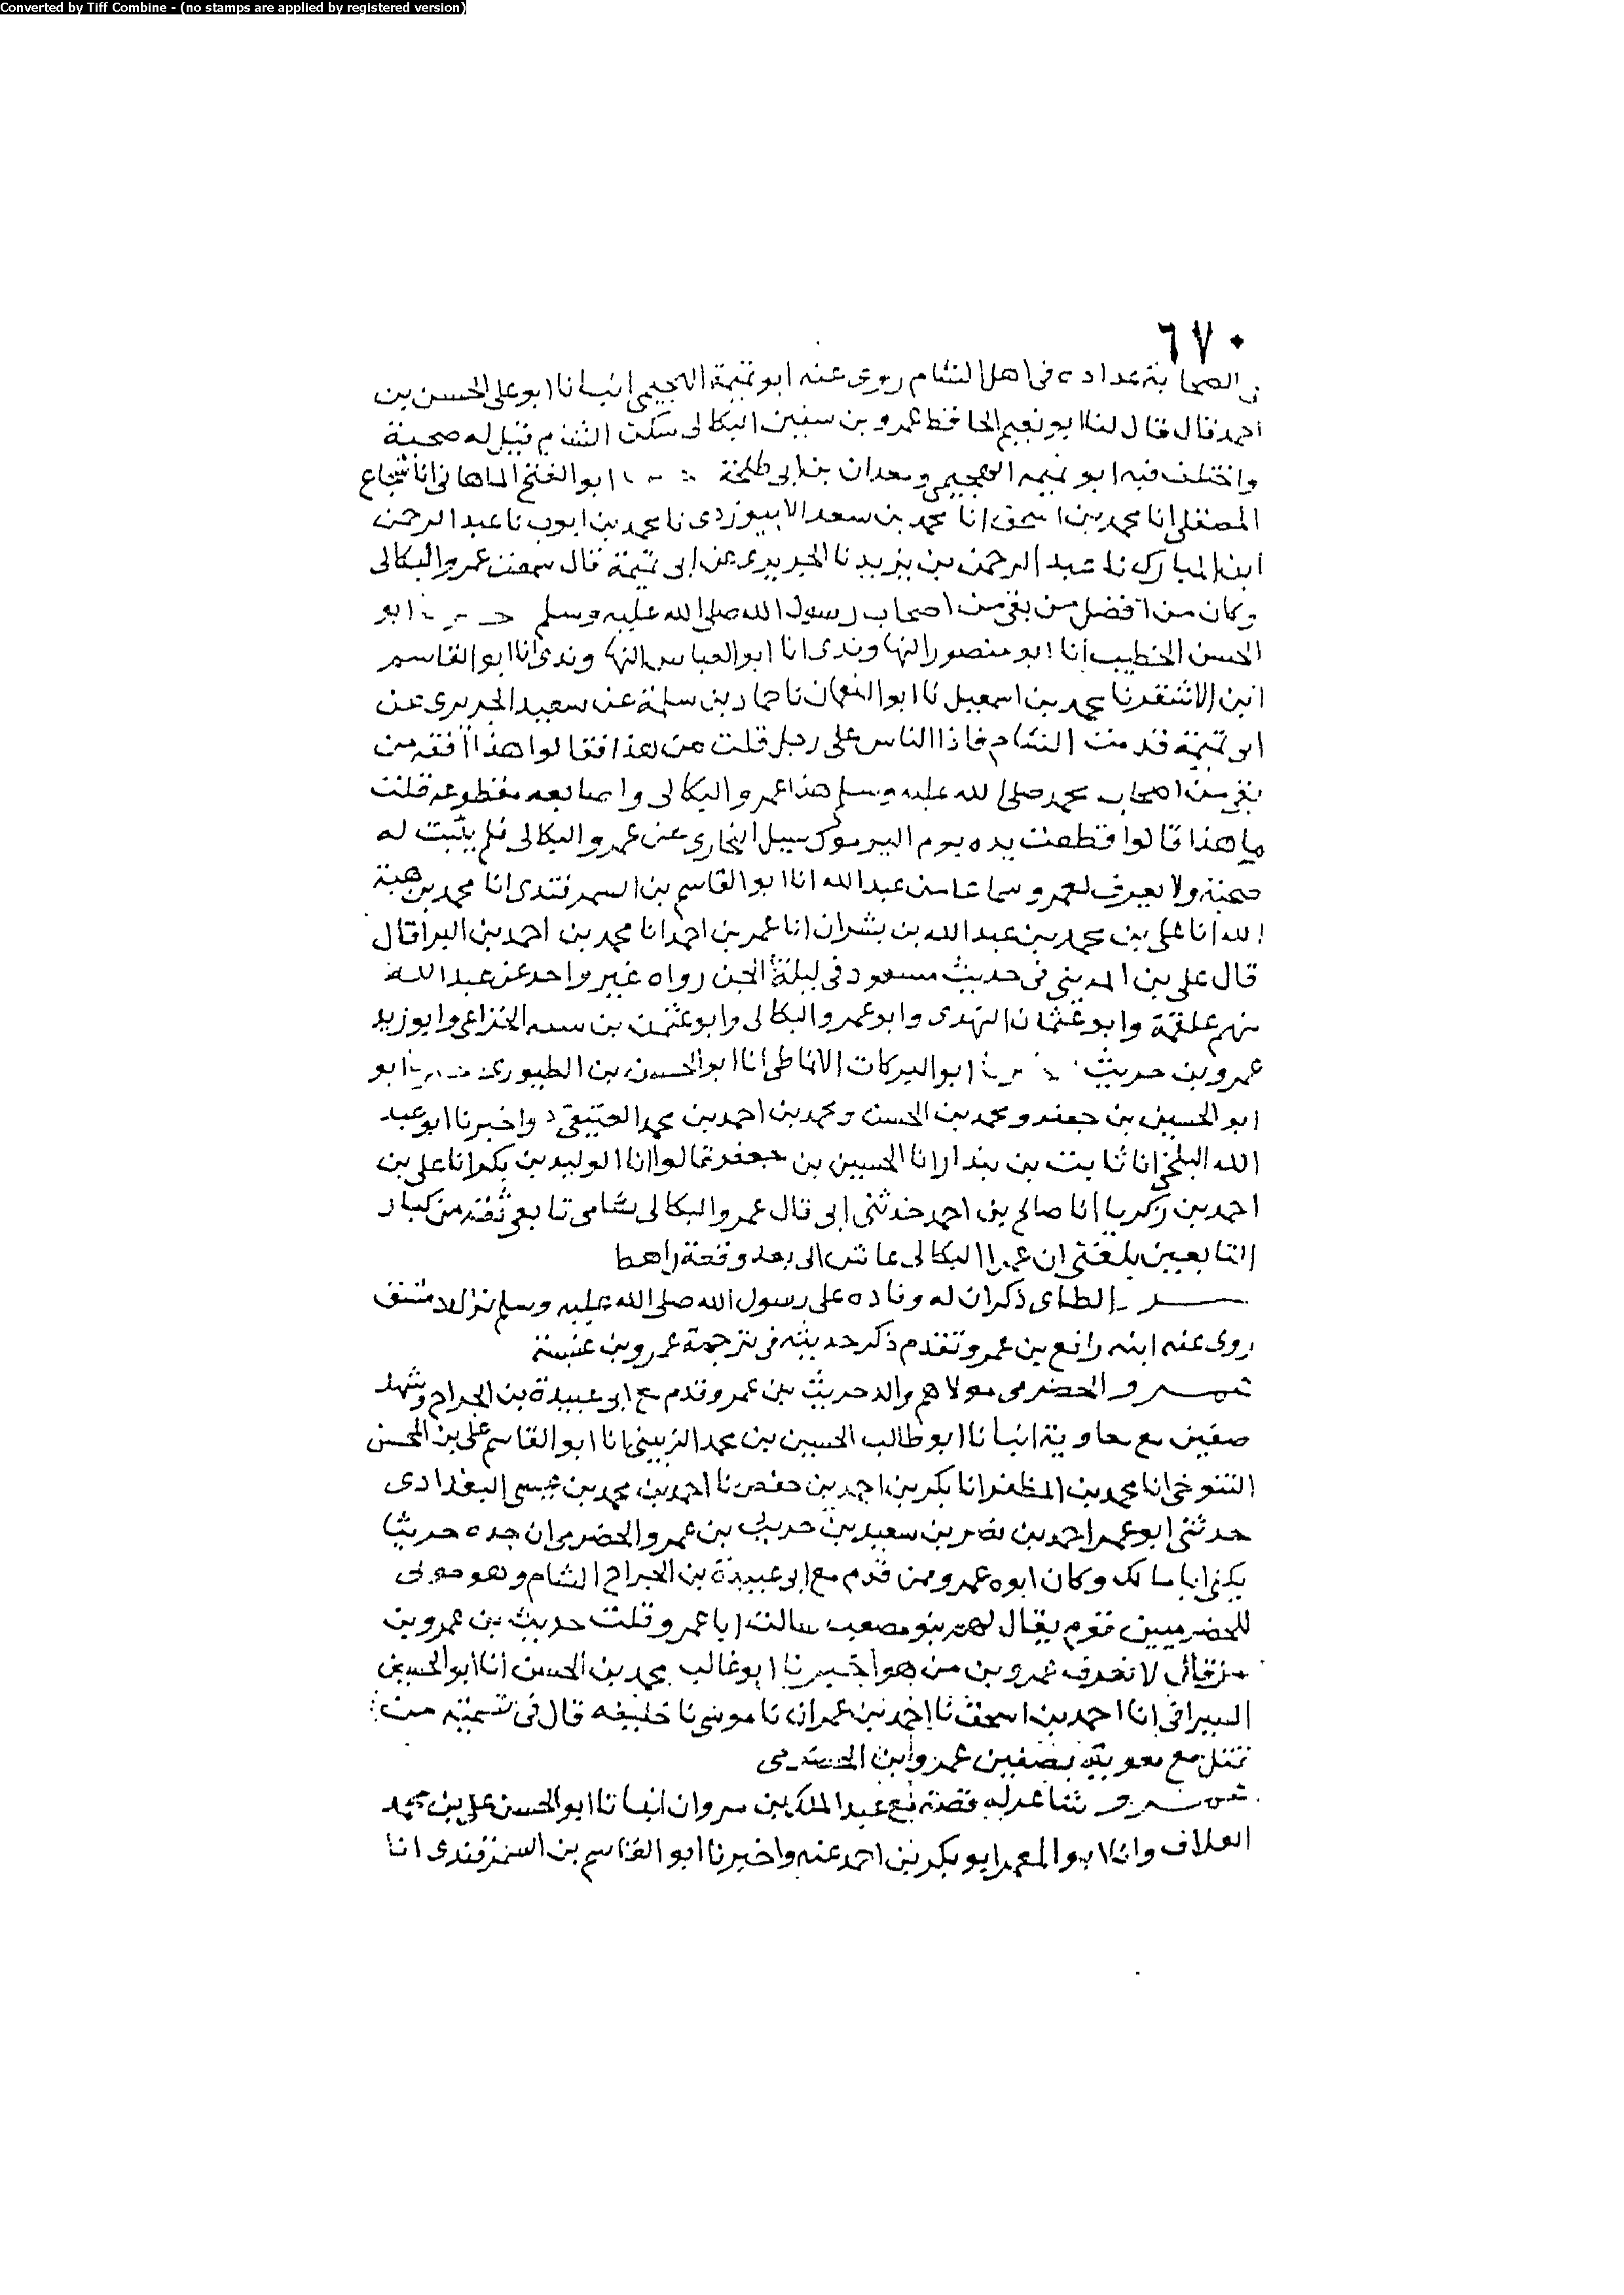 Converted by Tiff Combine - (no stamps are applied by registered version)
٦٧٠
في الصحابة عداده في اهل الشام روى عنه ابو تميمة الهجيمي انبانا ابو علي الحسن بن
احمد قال قال لنا ابو نعيم الحافظ عمرو بن سفين البكالى سكن الشام قيل له صحبة
واختلف فيه ابو تميمه الهجيمي ومعدان بن ابي طلحة ابو الفتح الماهاني انا شجاع
المصقلي انا محمد بن اسحق انا محمد بن سعد الابيوردى نا محمد بن ايوب نا عبد الرحمن
ابن المبارك نا عبد الرحمن بن يزيد نا الجريري عن ابى تميمة قال سمعت عمرو البكالى
وكان من افضل من بقى من اصحاب رسول الله صلى الله عليه وسلم ابو
الحسن الخطيب انا ابو منصور النهاوندى انا ابو العباس النهاوندى انا ابو القاسم
ابن الاشقر نا محمد بن اسمعيل نا ابو النعمان نا حماد بن سلمة عن سعيد الجريرى عن
ابى تميمة قدمت الشام فاذا الناس على رجل قلت من هذا فقالوا هذا افقه من
بقى من اصحاب محمد صلى الله عليه وسلم هذا عمرو البكالى واصابعه مقطوعه قلت
ما هذا قالوا قطعت يده يوم اليرموك سيل البخاري عن عمرو البكالى فلم يثبت له
صحبة ولا يعرف لعمرو سماعا من عبد الله انا ابو القاسم بن السمرقندى انا محمد بن هبة
الله انا على بن محمد بن عبد الله بن بشران انا عمر بن احمد انا محمد بن احمد بن البرا قال
قال على بن المديني في حديث مسعود في ليلة الجن رواه غير واحد عن عبد الله
منهم علقمة وابو عثمان النهدى وابو عمرو البكالى وابو عثمن بن سنه الخزاعى وابو زيد
عمرو بن حريث ابو البركات الانماطى انا ابو الحسين بن الطيورى ابو
ابو الحسين بن جعفر ومحمد بن الحسن ومحمد بن احمد بن محمد العتيقى واخبرنا ابو عبد
الله البلخي انا ثابت بن بندار انا الحسين بن جعفر قالوا انا الوليد بن بكر انا على بن
احمد بن زكريا انا صالح بن احمد حدثنى ابى قال عمرو البكالى شامى تابعى ثقة من كبار
التابعين بلغنى ان عمرا البكالى عاش الى بعد وقعة راهط
الطاى ذكر ان له وفاده على رسول الله صلى الله عليه وسلم نزل دمشق
روى عنه ابنه رافع بن عمرو تقدم ذكر حديثه فى ترجمة عمرو بن عنبسة
عمرو الحضرمى مولاهم والد حريث بن عمرو قدم مع ابى عبيدة بن الجراح وشهد
صفين مع معاوية انبانا ابو طالب الحسين بن محمد الزينبى انا ابو القاسم على بن المحسن
التنوخى انا محمد بن المظفر انا بكر بن احمد بن حفص نا احمد بن محمد بن عيسى البغدادى
حدثنى ابو عمر احمد بن نصر بن سعيد بن حريث بن عمرو الحضرمى ان جده حريثا
يكنى ابا مالك وكان ابوه عمرو ممن قدم مع ابى عبيدة بن الجراح الشام وهو مولى
للحضرميين قوم يقال لهم بنو مصعب سالت ابا عمرو قلت حريث بن عمرو بن
من فقال لا نعرف عمرو بن من هو اخبرنا ابو غالب محمد بن الحسن انا ابو الحسين
السيرافى انا احمد بن اسحق نا احمد بن عمران نا موسى نا خليفه قال فى تسمية من
قتل مع معوية بصفين عمرو ابن الحضرمى
عمرو شاعر له قصة مع عبد الملك بن مروان انبانا ابو الحسن على بن محمد
العلاف وانا ابو المعمر ابو بكر بن احمد عنه واخبرنا ابو القاسم بن السمرقندى انا